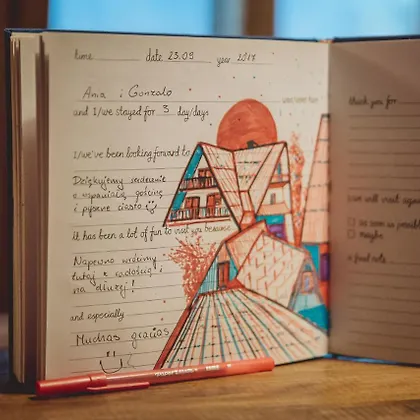 time date 23.09 year 2017
Ania i Gonzalo
and I/we stayed for 3 day/days
I/we've been looking forward to
Dziękujemy serdecznie
o wspaniałą gościnę
i pyszne ciasto
It has been a lot of fun to visit you because
Napewno wrócimy
tutaj z radością i
na dłużej!
and especially
Muchas gracias
thank you for
I/we will visit again
as soon as possible
maybe
a food note